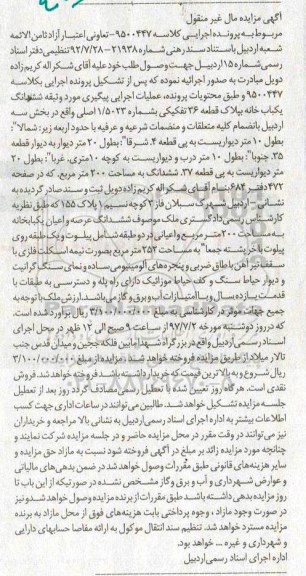 آگهی مزایده مال غیر منقول
مربوط به پرونده اجرایی کلاسه ۹۵۰۰۴۴۷-تعاونی اعتبار آزاد ثامن الائمه
شعبه اردبیل باستناد سند رهنی شماره ۲۱۹۳۸-۹۲/۷/۲۸ تنظیمی دفتر اسناد
رسمی شماره ۱۵ اردبیل جهت وصول طلب خود علیه آقای شکراله کریم زاده
دویل مبادرت به صدور اجرائیه نموده که پس از تشکیل پرونده اجرایی بکلاسه
۹۵۰۰۴۴۷ و طبق محتویات پرونده، عملیات اجرایی پیگیری مورد وثیقه ششدانگ
یکباب خانه بپلاک قطعه ۳۶ تفکیکی بشماره ۱/۵۰۲۳ اصلی واقع در بخش سه
اردبیل بانضمام کلیه متعلقات و منضمات شرعیه و عرفیه با حدود اربعه زیر: شمالا":
بطول ۱۰ متر دیواریست به پی قطعه ۴. شرقا": بطول ۲۰ متر دیوار به دیوار قطعه
۳۵. جنوبا": بطول ۱۰ متر درب و دیواریست به کوچه ۱۰متری. غربا": بطول ۲۰
متر دیواریست به پی قطعه ۳۷. ششدانگ به مساحت ۲۰۰ متر مربع. که در صفحه
۴۷۲دفتر ۶۸۴ بنام آقای شکراله کریم زاده دویل ثبت و سند صادر گردیده به
نشانی - اردبیل شهرک سبلان فاز ۳ کوچه نسیم ۱ پلاک ۱۵۵ که طبق نظریه
کارشناس رسمی دادگستری ملک موصوف ششدانگ عرصه و اعیان یکبابخانه
به مساحت ۲۰۰ متر مربع و اعیانی در دو طبقه شامل پیلوت و یک طبقه روی
پیلوت با خرپشته جمعا" به مساحت ۲۵۳ متر مربع بصورت نیمه اسکلت فلزی با
سقف تیر آهن با طاق ضربی و پنجره های آلومینیومی ساده و نمای سنگ گرانیت
و دیوار حیاط سنگ و کف حیاط موزائیک دارای راه پله و دسترسی به طبقات با
قدمت یازده سال و با امتیازات آب و برق و گاز می باشد. ارزش ملک با توجه به
جمیع جهات موثر در کارشناسی به مبلغ ۳/۱۰۰/۰۰۰/۰۰۰ ریال برآورد شده است.
که در روز دوشنبه مورخه ۹۷/۷/۲ از ساعت ۹ صبح الی ۱۲ ظهر در محل اجرای
اسناد رسمی اردبیل واقع در بزرگراه شهدا مابین فلکه ججین و میدان قدس جنب
تالار میلاد از طریق مزایده فروخته خواهد شد. مزایده از مبلغ ۳/۱۰۰/۰۰۰/۰۰۰
ریال شروع و به بالاترین قیمت که خریدار داشته باشد فروخته خواهد شد. فروش
نقدی است. هرگاه روز تعیین شده با تعطیل رسمی مصادف گردد روز بعد از تعطیل
جلسه مزایده تشکیل خواهد شد. طالبین می توانند در ساعات اداری جهت کسب
اطلاعات بیشتر به اداره اجرای اسناد رسمی اردبیل به نشانی بالا مراجعه و خریداران
نیز می توانند در وقت مقرر در محل مزایده حاضر و در جلسه مزایده شرکت نمایند و
چنانچه مورد مزایده زائد بر مبلغ در آگهی فروخته شود نسبت به مازاد حق مزایده و
سایر هزینه های قانونی طبق مقررات وصول خواهد شد در ضمن بدهی های مالیاتی
و عوارض شهرداری و آب و برق و گاز مشخص نشده در صورتیکه از این باب تا
روز مزایده بدهی داشته باشد طبق مقررات از برنده مزایده وصول خواهد شد و نیز
در صورت وجود مازاد، وجوه پرداختی بابت هزینه های فوق از محل مازاد به برنده
مزایده مسترد خواهد شد. تنظیم سند انتقال موکول به ارائه مفاصا حسابهای دارایی
و شهرداری و غیره ... خواهد بود.
اداره اجرای اسناد رسمی اردبیل